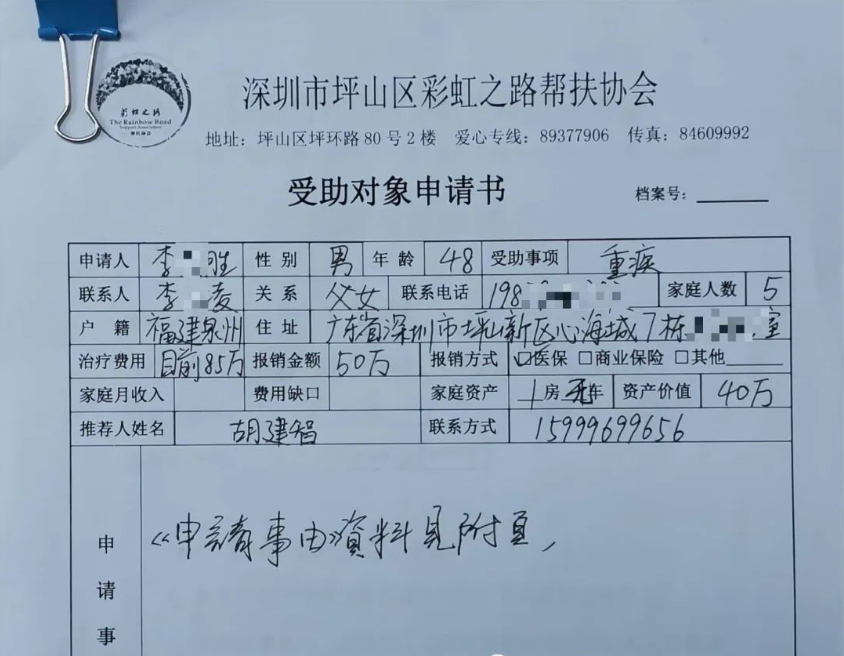 彩虹之路
The Rainbow Road
深圳市坪山区彩虹之路帮扶协会
地址：坪山区坪环路80号2楼 爱心专线：89377906 传真：84609992
受助对象申请书 档案号：
申请人 李 胜 性别 男 年龄 48 受助事项 重疾
联系人 李 凌 关系 父女 联系电话 198 家庭人数 5
户籍 福建泉州 住址 广东省深圳市坪山新区心海城7栋 室
治疗费用 目前85万 报销金额 50万 报销方式 ☑医保 □商业保险 □其他
家庭月收入 费用缺口 家庭资产 1房 无车 资产价值 40万
推荐人姓名 胡建智 联系方式 15999699656
申请事
《申请事由》资料见附页，